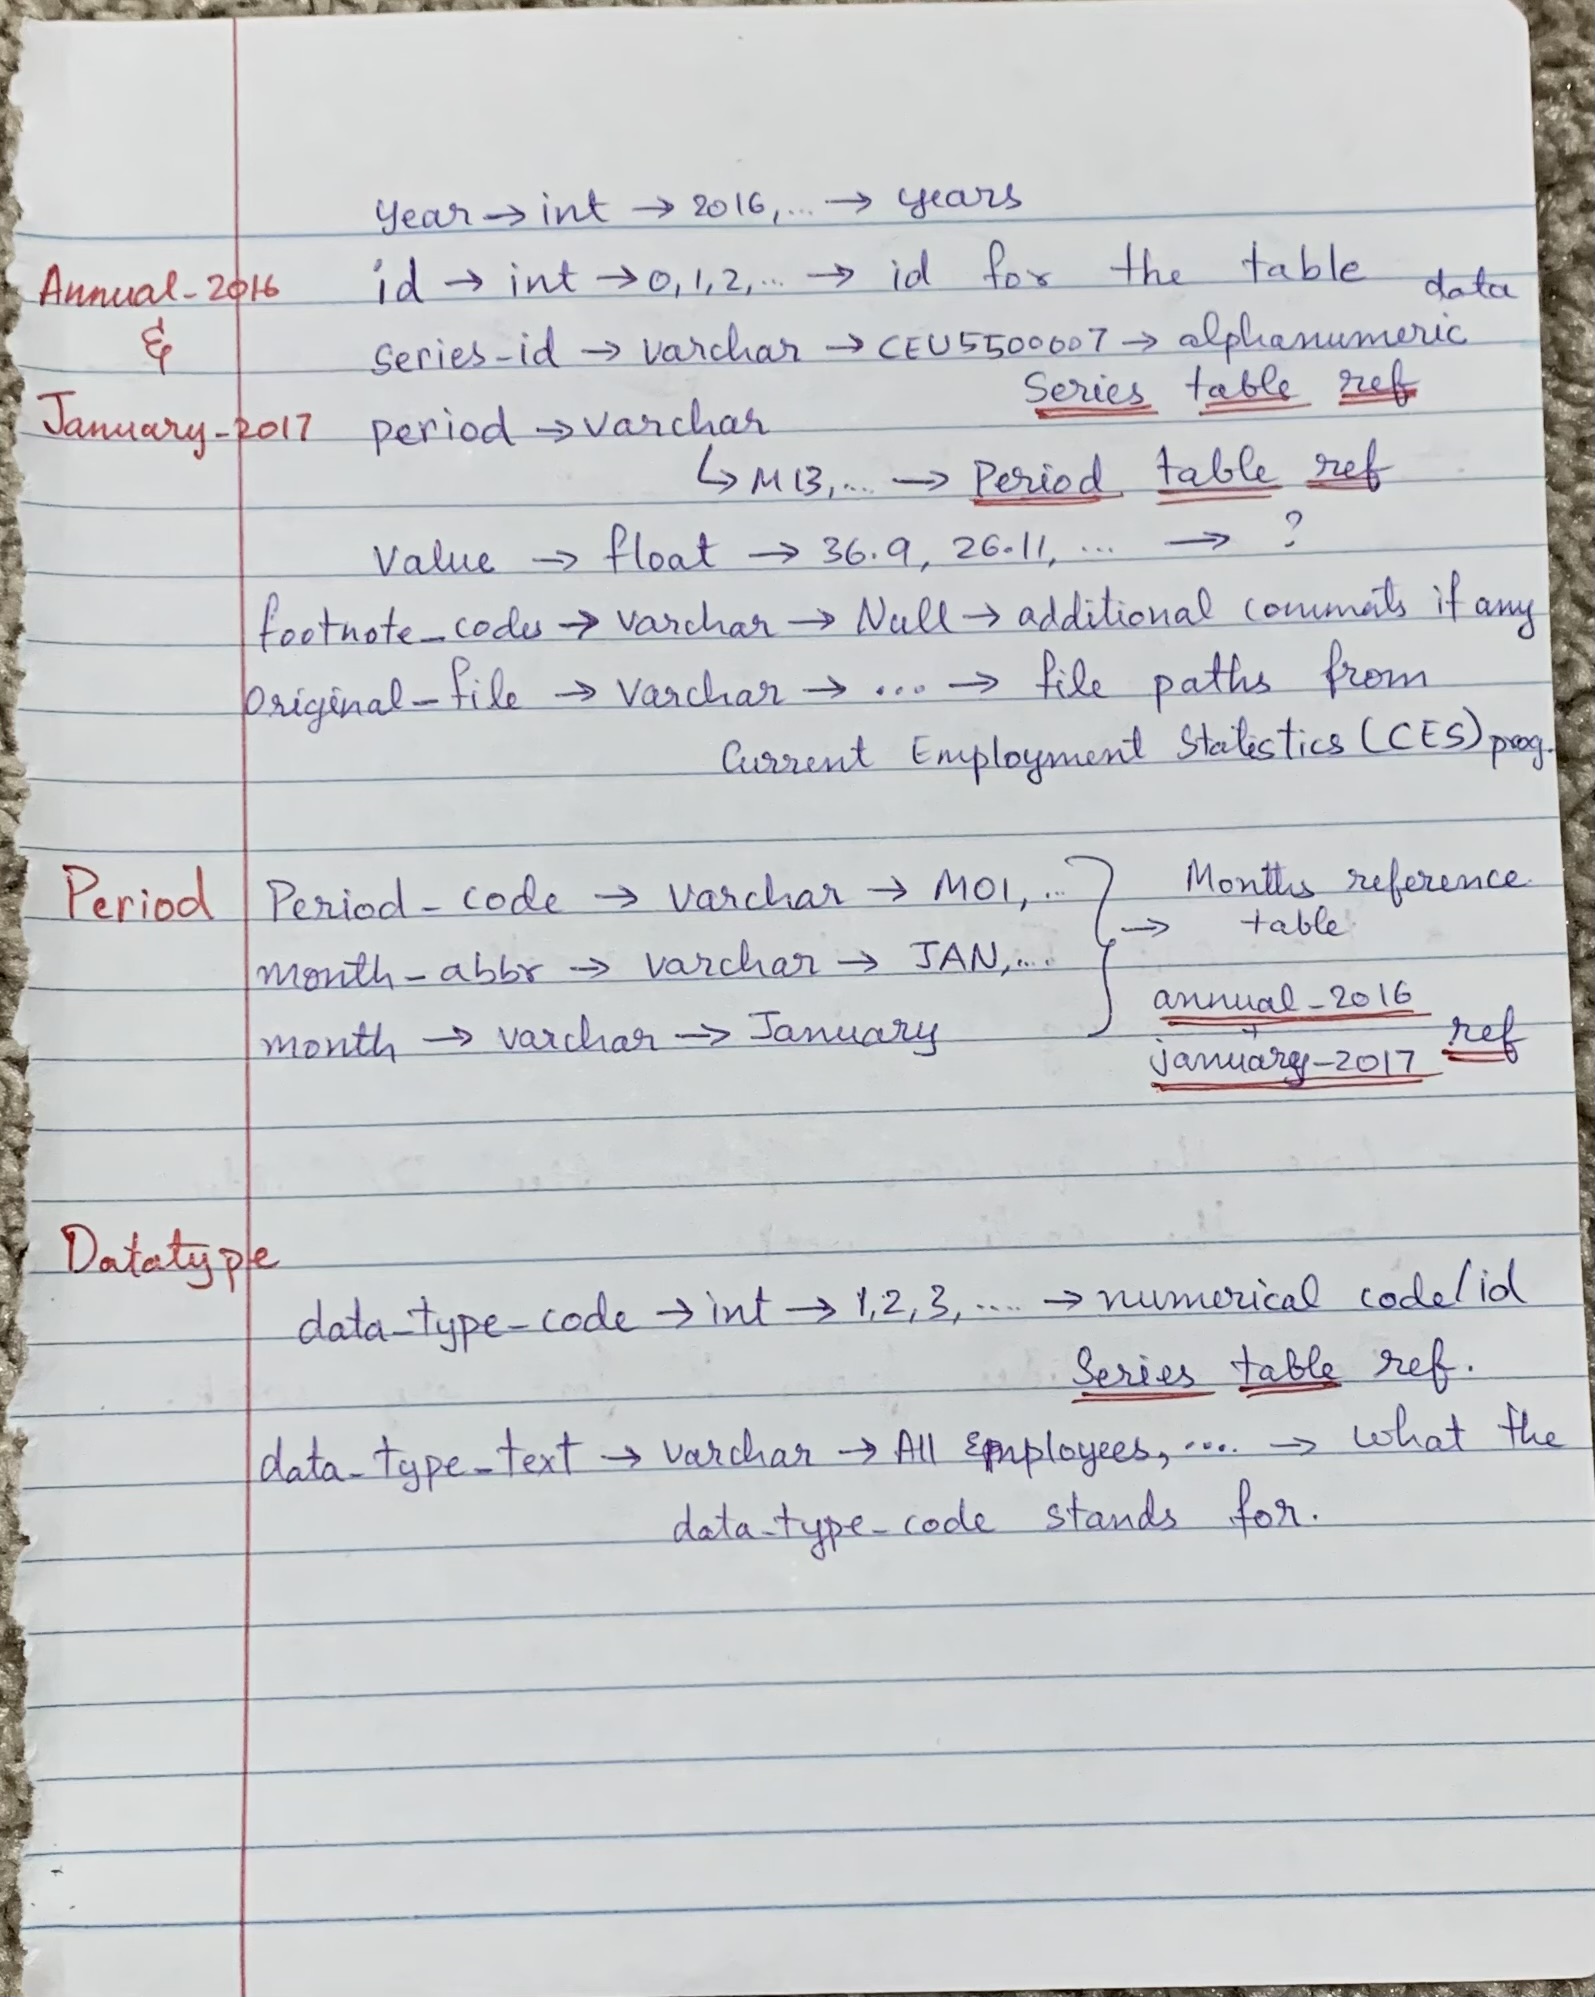 year → int → 2016,... → years
Annual-2016 id → int → 0,1,2,... → id for the table
& series-id → varchar → CEU5500007 → alphanumeric data
Series table ref
January-2017 period → varchar
↳ M13,... → Period table ref
Value → float → 36.9, 26.11, ... → ?
footnote_codes → varchar → Null → additional comments if any
original-file → varchar → ... → file paths from
Current Employment Statistics (CES) prog.
Period Period-code → varchar → M01,... } → Months reference
table
month-abbr → varchar → JAN,...
annual-2016
month → varchar → January + ref
january-2017
Datatype
data-type-code → int → 1,2,3,.... → numerical code/id
Series table ref.
data-type-text → varchar → All Employees, .... → what the
data-type-code stands for.